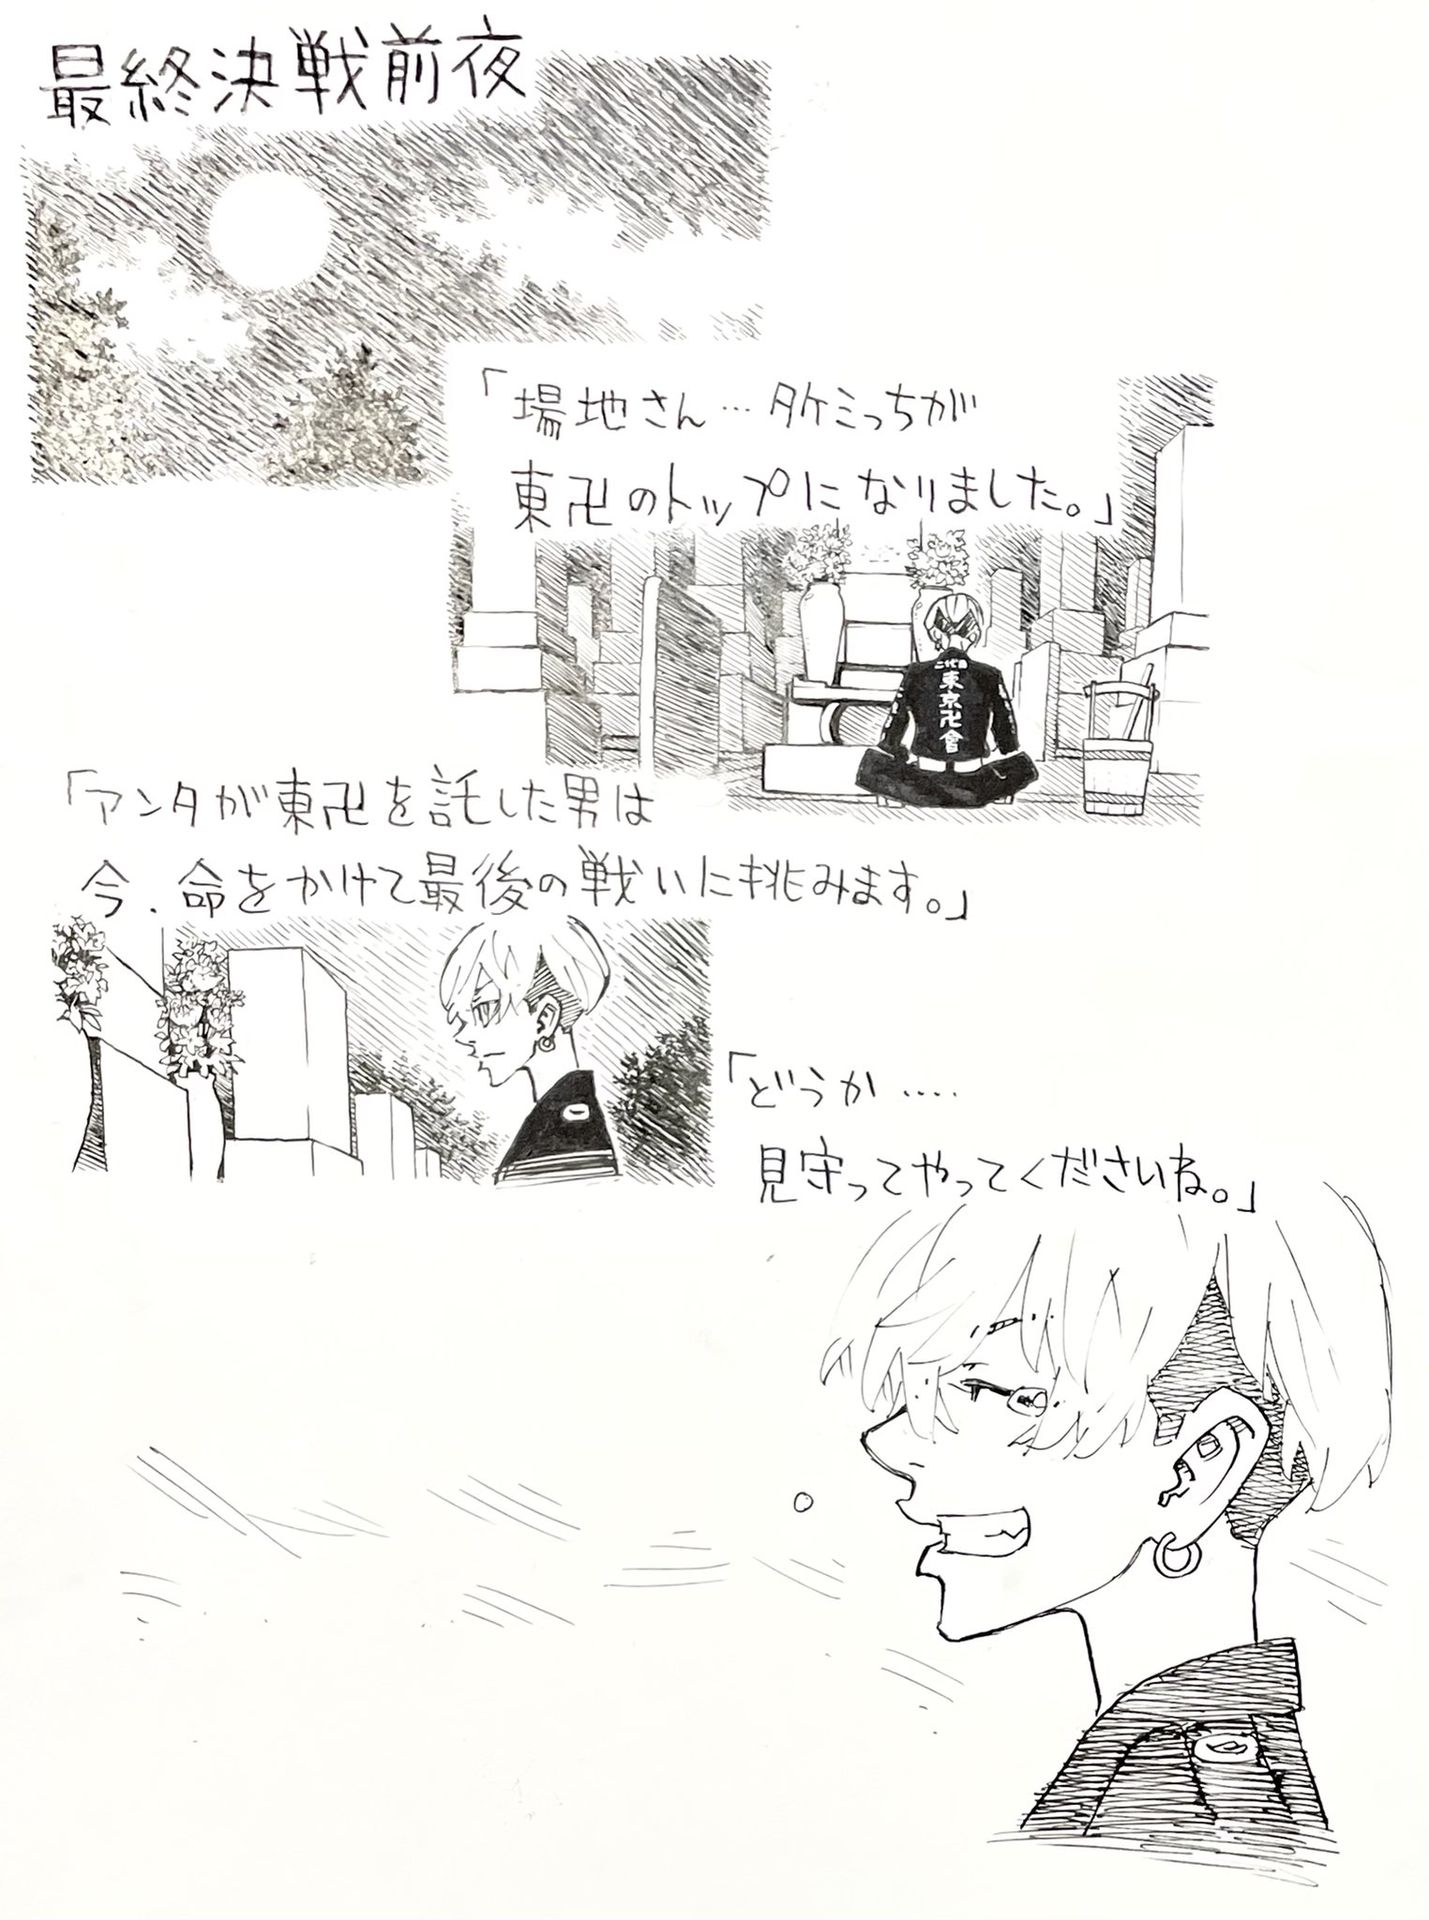 最終決戦前夜
「場地さん…タケミっちが
東卍のトップになりました。」
二代目
東京卍會
「アンタが東卍を託した男は
今、命をかけて最後の戦いに挑みます。」
「どうか‥‥
見守ってやってくださいね。」